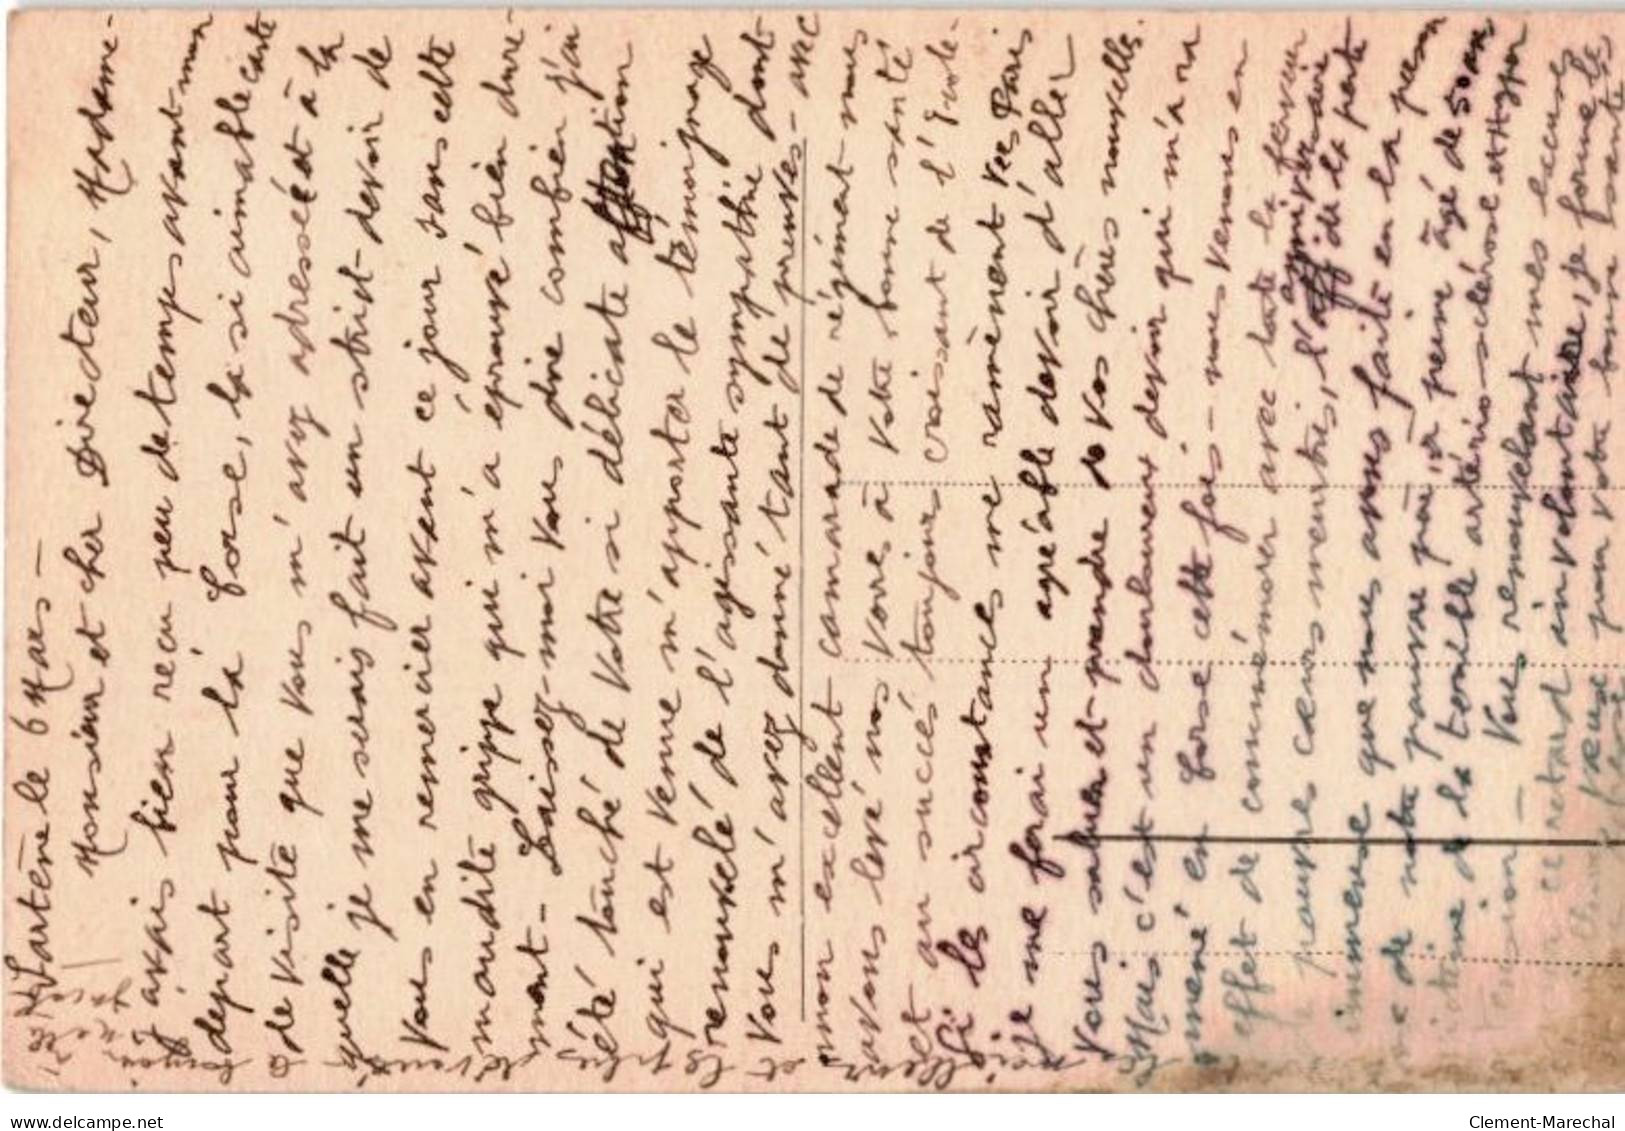 Sartène le 6 Mars -
Monsieur et cher Directeur, Madame -
J'avais bien reçu peu de temps avant mon
départ pour la Corse, la si aimable carte
de visite que vous m'avez adressée et à la
quelle je me serais fait un strict devoir de
vous en remercier avant ce jour sans cette
maudite grippe qui m'a éprouvé bien dure-
ment - Laissez-moi vous dire combien j'ai
été touché de votre si délicate attention
qui est venue m'apporter le témoignage
renouvelé de l'agissante sympathie dont
vous m'avez donné tant de preuves - avec
mon excellent camarade de régiment nous
avons levé nos verres à votre bonne santé
et au succès toujours croissant de l'Ecole -
Si les circonstances me ramènent vers Paris
je me ferai un agréable devoir d'aller
vous saluer et prendre de vos chères nouvelles.
Mais c'est un douloureux devoir qui m'a ra
mené en Corse cette fois - nous venons en
effet de commémorer avec toute la ferveur
de pauvres cœurs meurtris, l'anniversaire de la perte
immense que nous avons faite en la person
ne de notre pauvre père, à peine âgé de 50 ans
victime de la terrible artério-sclérose et hyper
tension - Vous renouvelant mes excuses
ce retard involontaire, je forme le
vœux pour votre bonne santé
Clement-Marechal